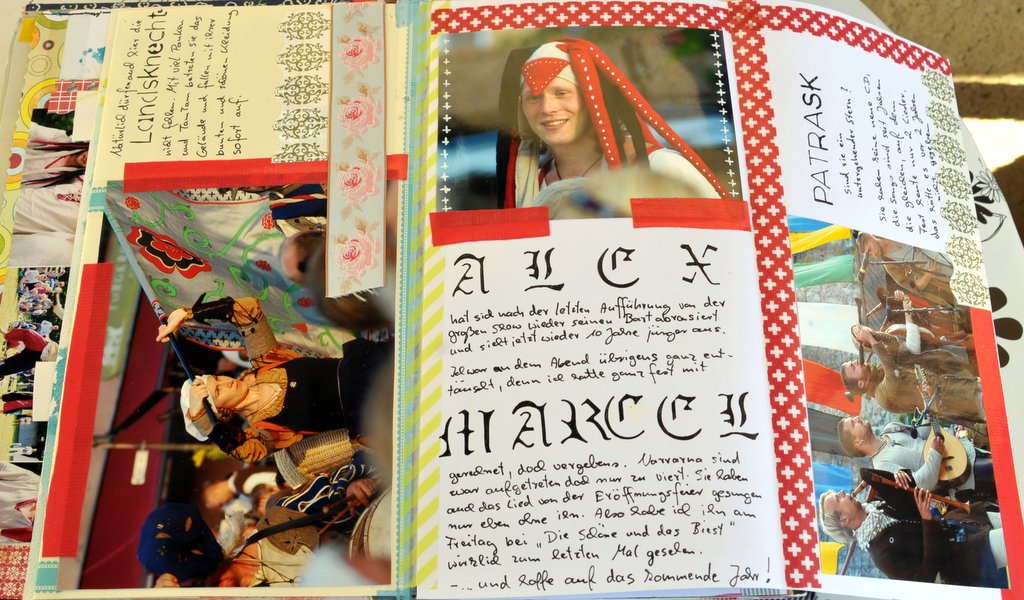 Natürlich dürfen auch hier die
Landsknechte
nicht fehlen. Mit viel Pauken
und TamTam betreten sie das
Gelände und fallen mit ihrer
bunten und schönen Kleidung
sofort auf.
ALEX
hat sich nach der letzten Aufführung von der
großen Show wieder seinen Bart abrasiert
und sieht jetzt wieder 10 Jahre jünger aus.
Ich war an dem Abend übrigens ganz ent-
täuscht, denn ich hatte ganz fest mit
MARCEL
gerechnet, doch vergebens. Narrarna sind
zwar aufgetreten doch nur zu viert. Sie haben
auch das Lied von der Eröffnungsfeier gesungen
nur eben ohne ihn. Also habe ich ihn am
Freitag bei „Die Schöne und das Biest"
wirklich zum letzten Mal gesehen.
- ... und hoffe auf das kommende Jahr!
PATRASK
Sind sie ein
untergehender Stern?
Sie haben keine neue CD,
die Songs sind seit Jahren
die gleichen, auf dem
Text heute nur ein Lacher,
das hätte es vor 2 Jahren
das nicht gegeben.